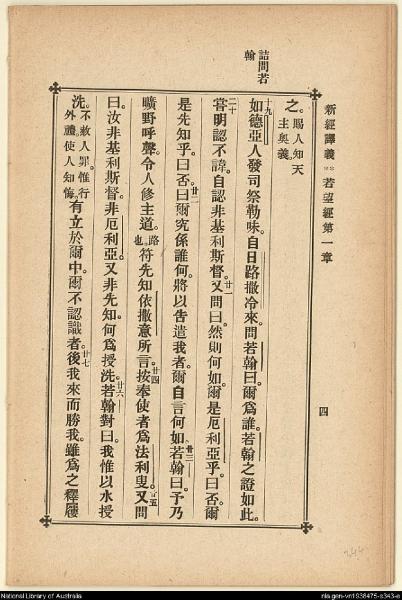 新經譯義 若望經第一章
四
詰問若翰
之。賜人知天主奧義。
十九 如德亞人發司祭勒味。自日路撒冷來。問若翰曰。爾爲誰。若翰之證如此。
二十 嘗明認不諱。自認非基利斯督。廿一 又問曰。然則何如。爾是厄利亞乎。曰。否。爾
是先知乎。曰。否。廿二 曰。爾究係誰。何將以告遣我者。爾自言何如。廿三 若翰曰。予乃
曠野呼聲。令人修主道。路也。符先知依撒意所言。廿四 按奉使者爲法利叟。廿五 又問
曰。汝非基利斯督。非厄利亞。又非先知。何爲授洗。廿六 若翰對曰。我惟以水授
洗。不赦人罪。惟行外禮。使人知悔。有立於爾中。爾不認識者。廿七 後我來而勝我。雖爲之釋屨
National Library of Australia
nla.gen-vn1938475-s343-e